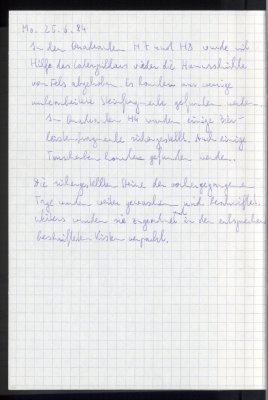 Mo. 25.6.84
In den Quadranten H7 und H8 wurde mit
Hilfe des Caterpillars wieder die Humusschichte
vom Fels abgehoben. Es konnten nur wenige
unbearbeitete Steinfragmente gefunden werden.
Im Quadranten H4 wurden einige
sichergestellt. Auch einige
Tonscherben konnten gefunden werden.
Die sichergestellten Steine der vorhergegangenen
Tage wurden weiter gewaschen und beschriftet.
Weiters wurden sie zugeordnet und in den entsprechend
beschrifteten Kisten verpackt.